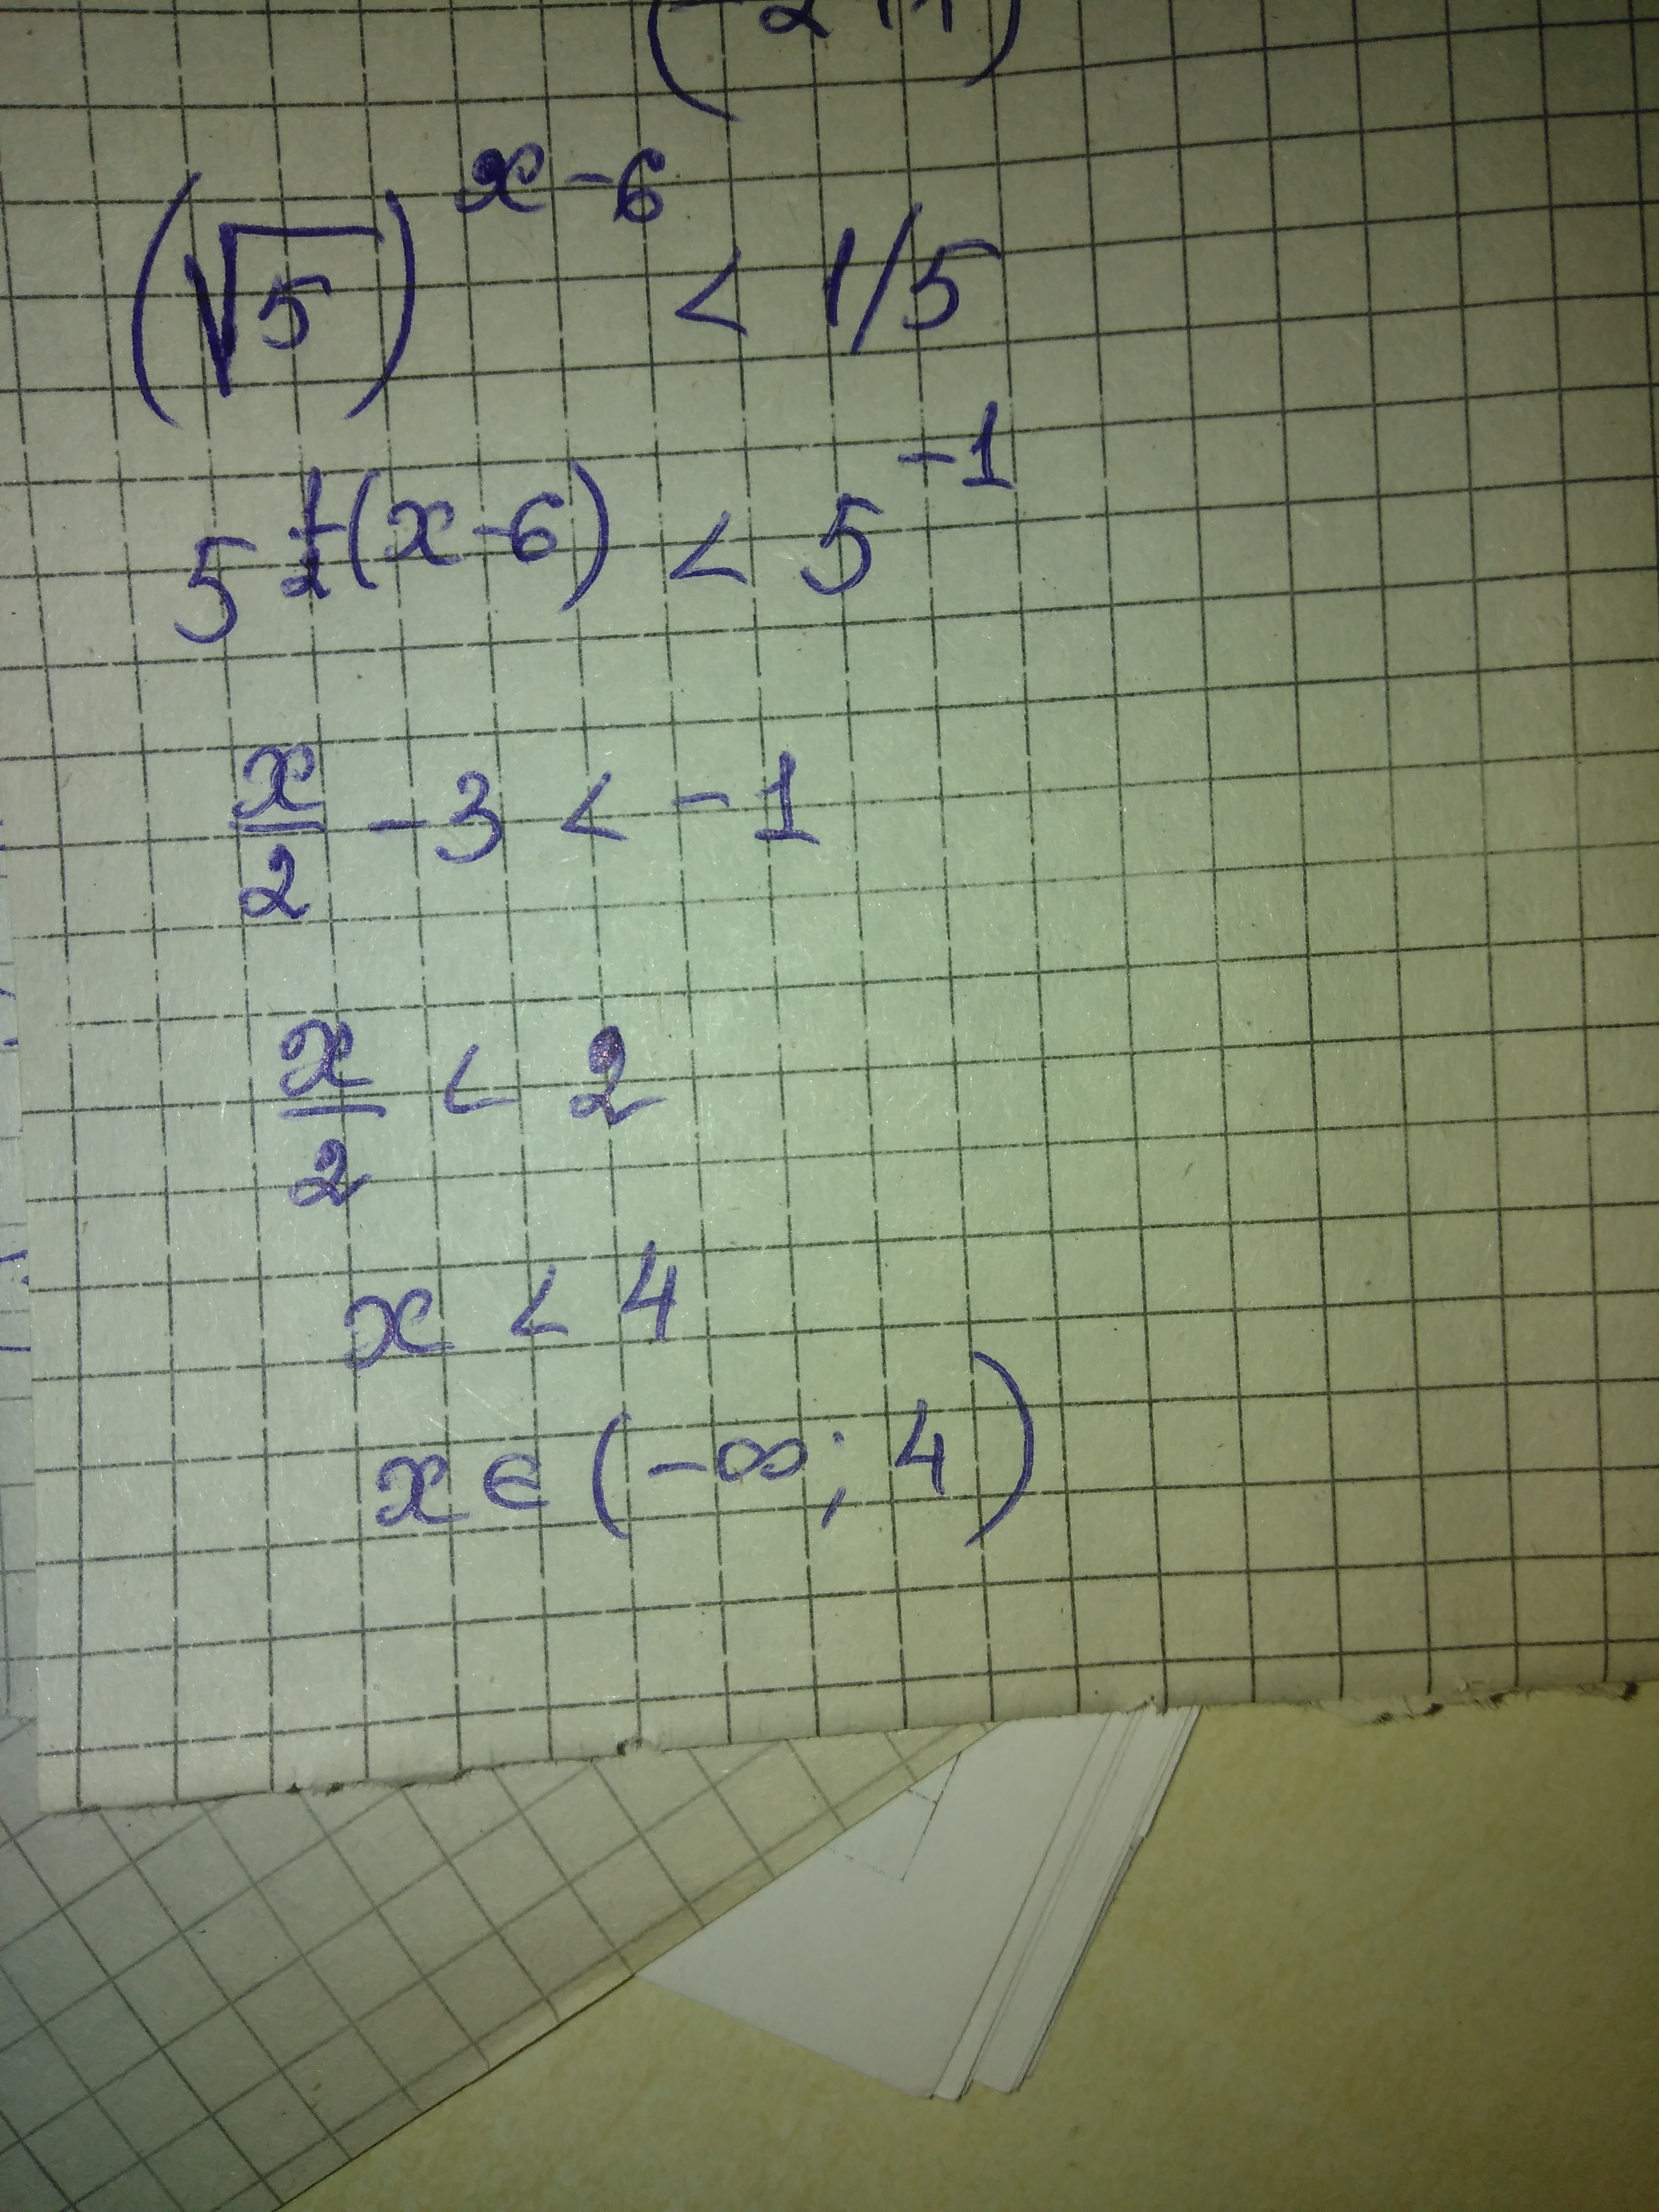 (√5)^(x-6) < 1/5
5^(1/2(x-6)) < 5^(-1)
x/2 - 3 < -1
x/2 < 2
x < 4
x ∈ (-∞; 4)